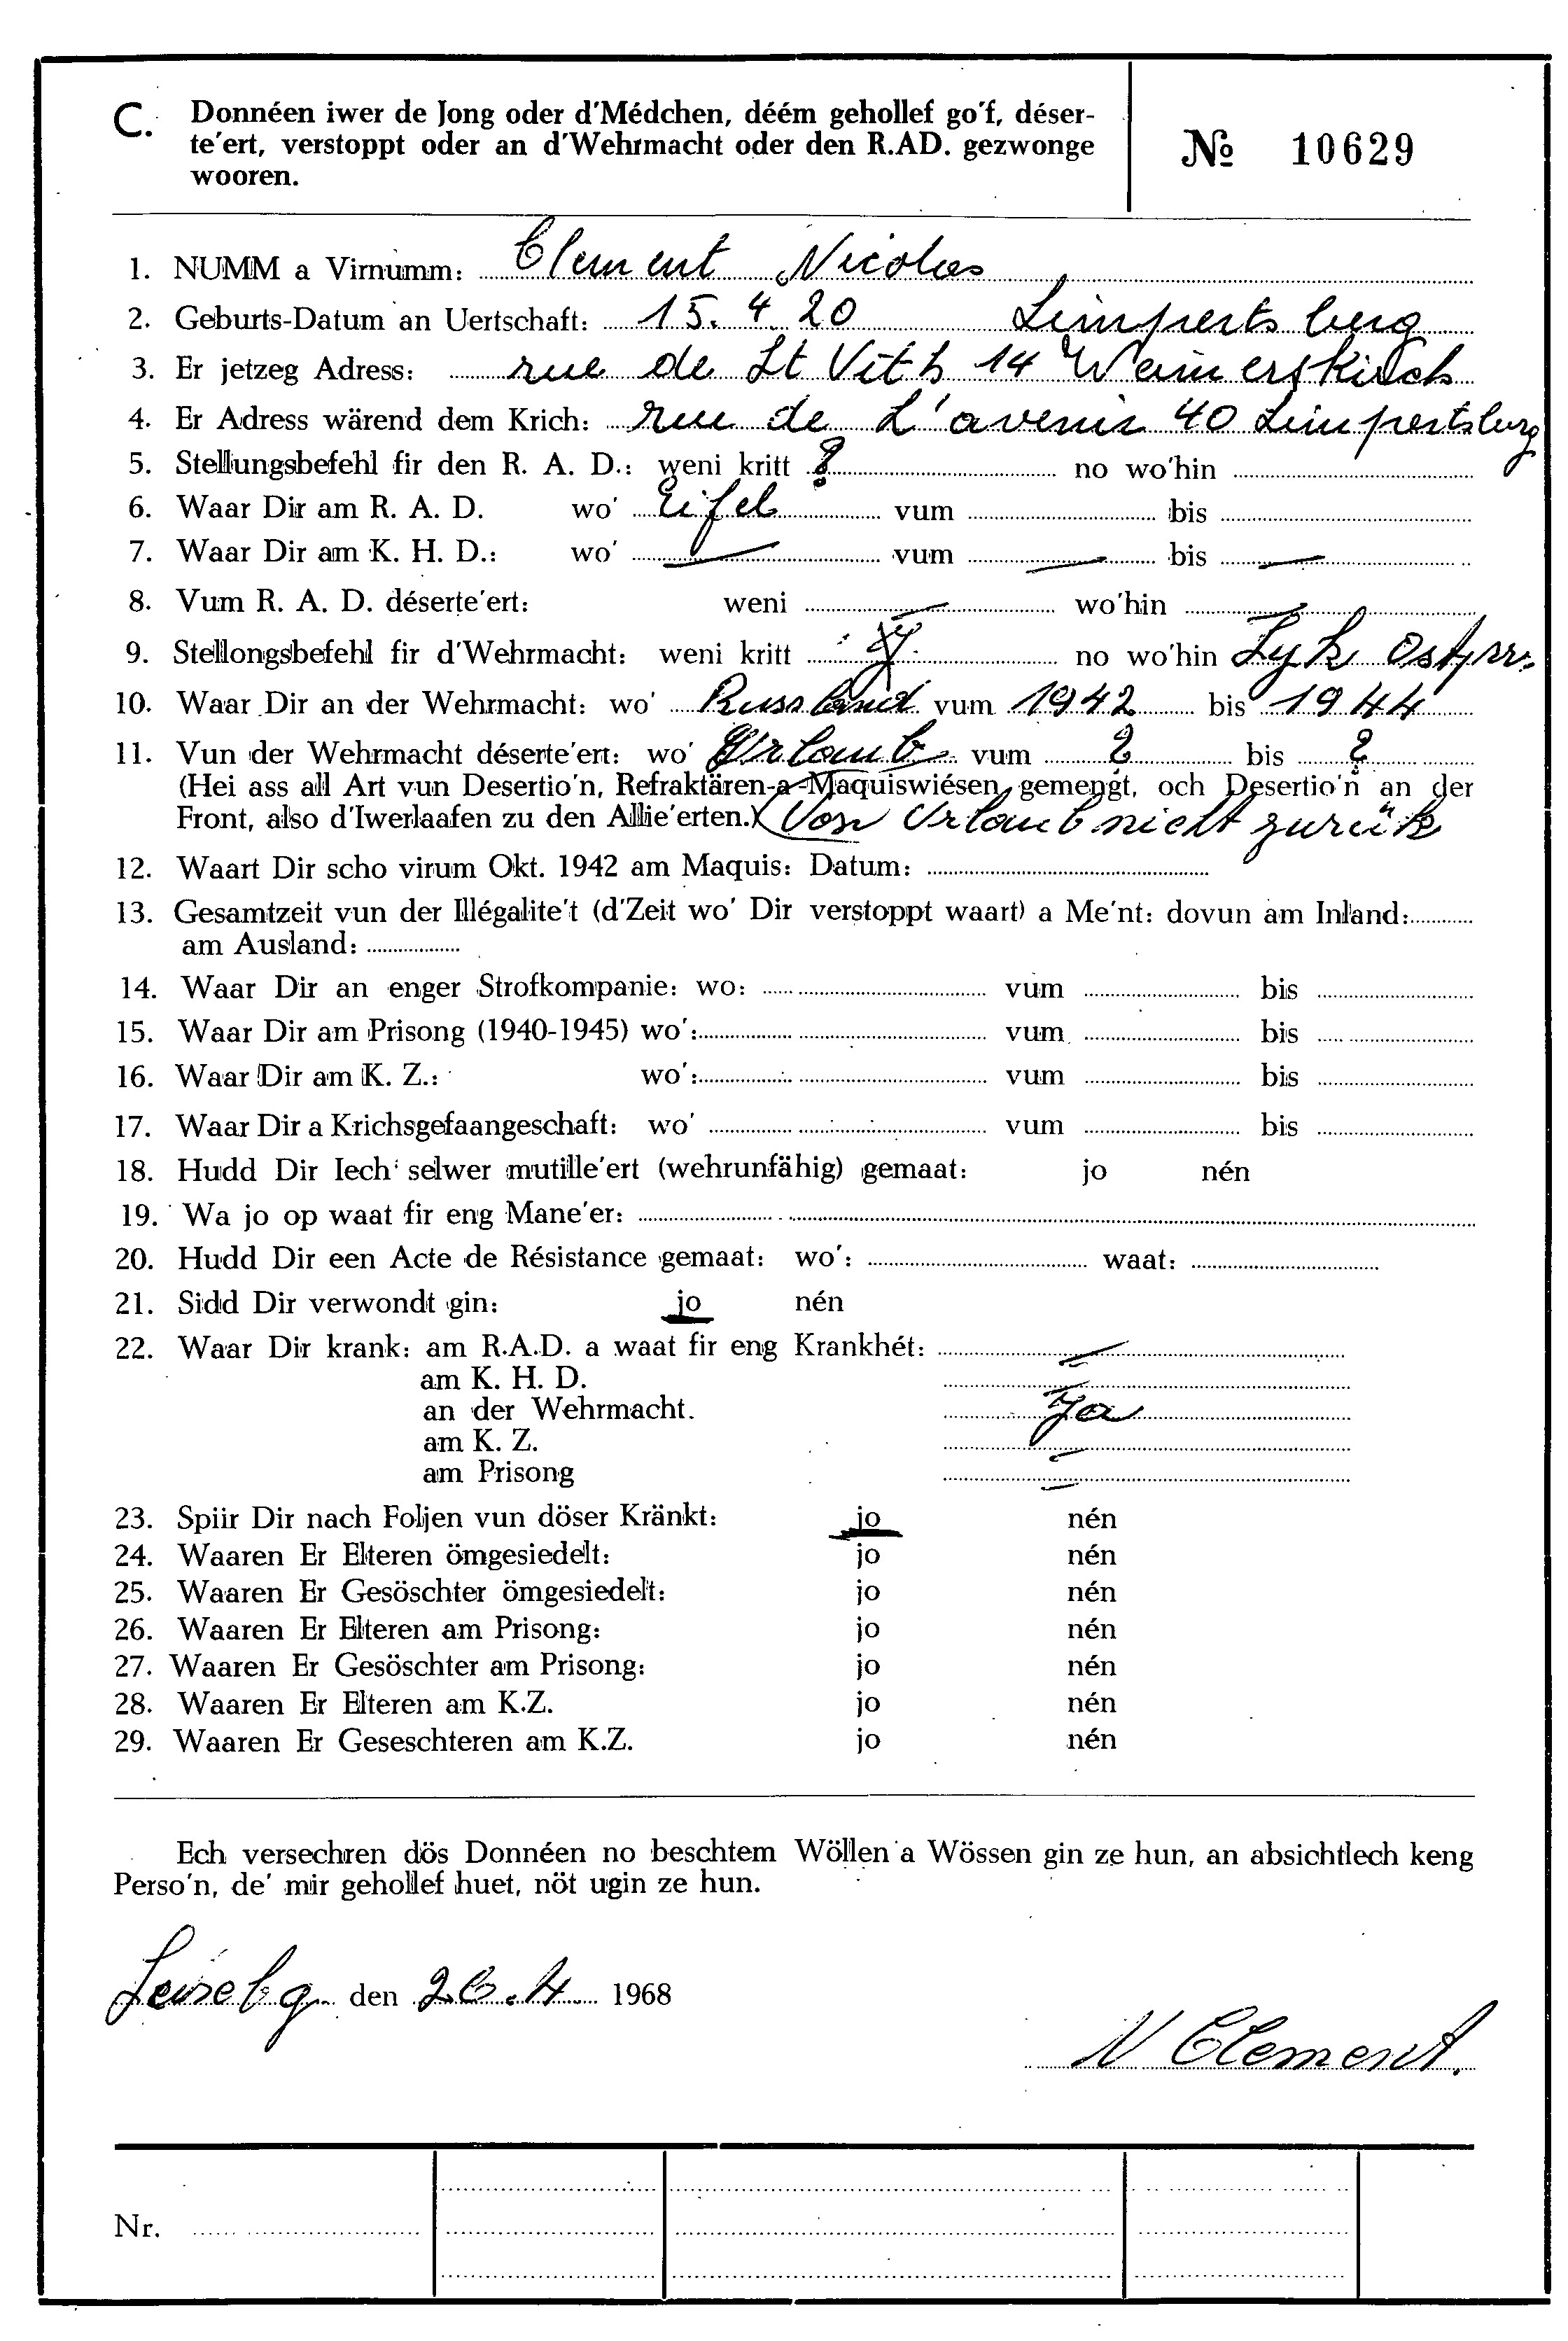 C. Donnéen iwer de Jong oder d'Médchen, déém gehollef go'f, déser-
te'ert, verstoppt oder an d'Wehrmacht oder den R.AD. gezwonge
wooren.
№ 10629
1. NUMM a Virnumm: Clement Nicolas
2. Geburts-Datum an Uertschaft: 15. 4. 20 Limpertsberg
3. Er jetzeg Adress: rue de St Vith 14 Weimerskirch
4. Er Adress wärend dem Krich: rue de L'avenir 40 Limpertsberg
5. Stellungsbefehl fir den R. A. D.: weni kritt ? no wo'hin
6. Waar Dir am R. A. D. wo' Eifel vum bis
7. Waar Dir am K. H. D.: wo' — vum — bis —
8. Vum R. A. D. déserte'ert: weni — wo'hin —
9. Stellongsbefehl fir d'Wehrmacht: weni kritt no wo'hin Lyk Ostpr.
10. Waar Dir an der Wehrmacht: wo' Russland vum 1942 bis 1944
11. Vun der Wehrmacht déserte'ert: wo' Urlaub vum ? bis ?
(Hei ass all Art vun Desertio'n, Refraktären-a-Maquiswiésen gemengt, och Desertio'n an der
Front, also d'Iwerlaafen zu den Allie'erten.) (Von Urlaub nicht zurük
12. Waart Dir scho virum Okt. 1942 am Maquis: Datum:
13. Gesamtzeit vun der Illégalite't (d'Zeit wo' Dir verstoppt waart) a Me'nt: dovun am Inland:
am Ausland:
14. Waar Dir an enger Strofkompanie: wo: vum bis
15. Waar Dir am Prisong (1940-1945) wo': vum bis
16. Waar Dir am K. Z.: wo': vum bis
17. Waar Dir a Krichsgefaangeschaft: wo' vum bis
18. Hudd Dir Iech selwer mutille'ert (wehrunfähig) gemaat: jo nén
19. Wa jo op waat fir eng Mane'er:
20. Hudd Dir een Acte de Résistance gemaat: wo': waat:
21. Sidd Dir verwondt gin: jo nén
22. Waar Dir krank: am R.A.D. a waat fir eng Krankhét: —
am K. H. D. —
an der Wehrmacht. Ja
am K. Z. —
am Prisong —
23. Spiir Dir nach Foljen vun döser Kränkt: jo nén
24. Waaren Er Elteren ömgesiedelt: jo nén
25. Waaren Er Gesöschter ömgesiedelt: jo nén
26. Waaren Er Elteren am Prisong: jo nén
27. Waaren Er Gesöschter am Prisong: jo nén
28. Waaren Er Elteren am K.Z. jo nén
29. Waaren Er Geseschteren am K.Z. jo nén
Ech versechren dös Donnéen no beschtem Wöllen a Wössen gin ze hun, an absichtlech keng
Perso'n, de' mir gehollef huet, nöt ugin ze hun.
den 26.4 1968
N Clement.
Nr.